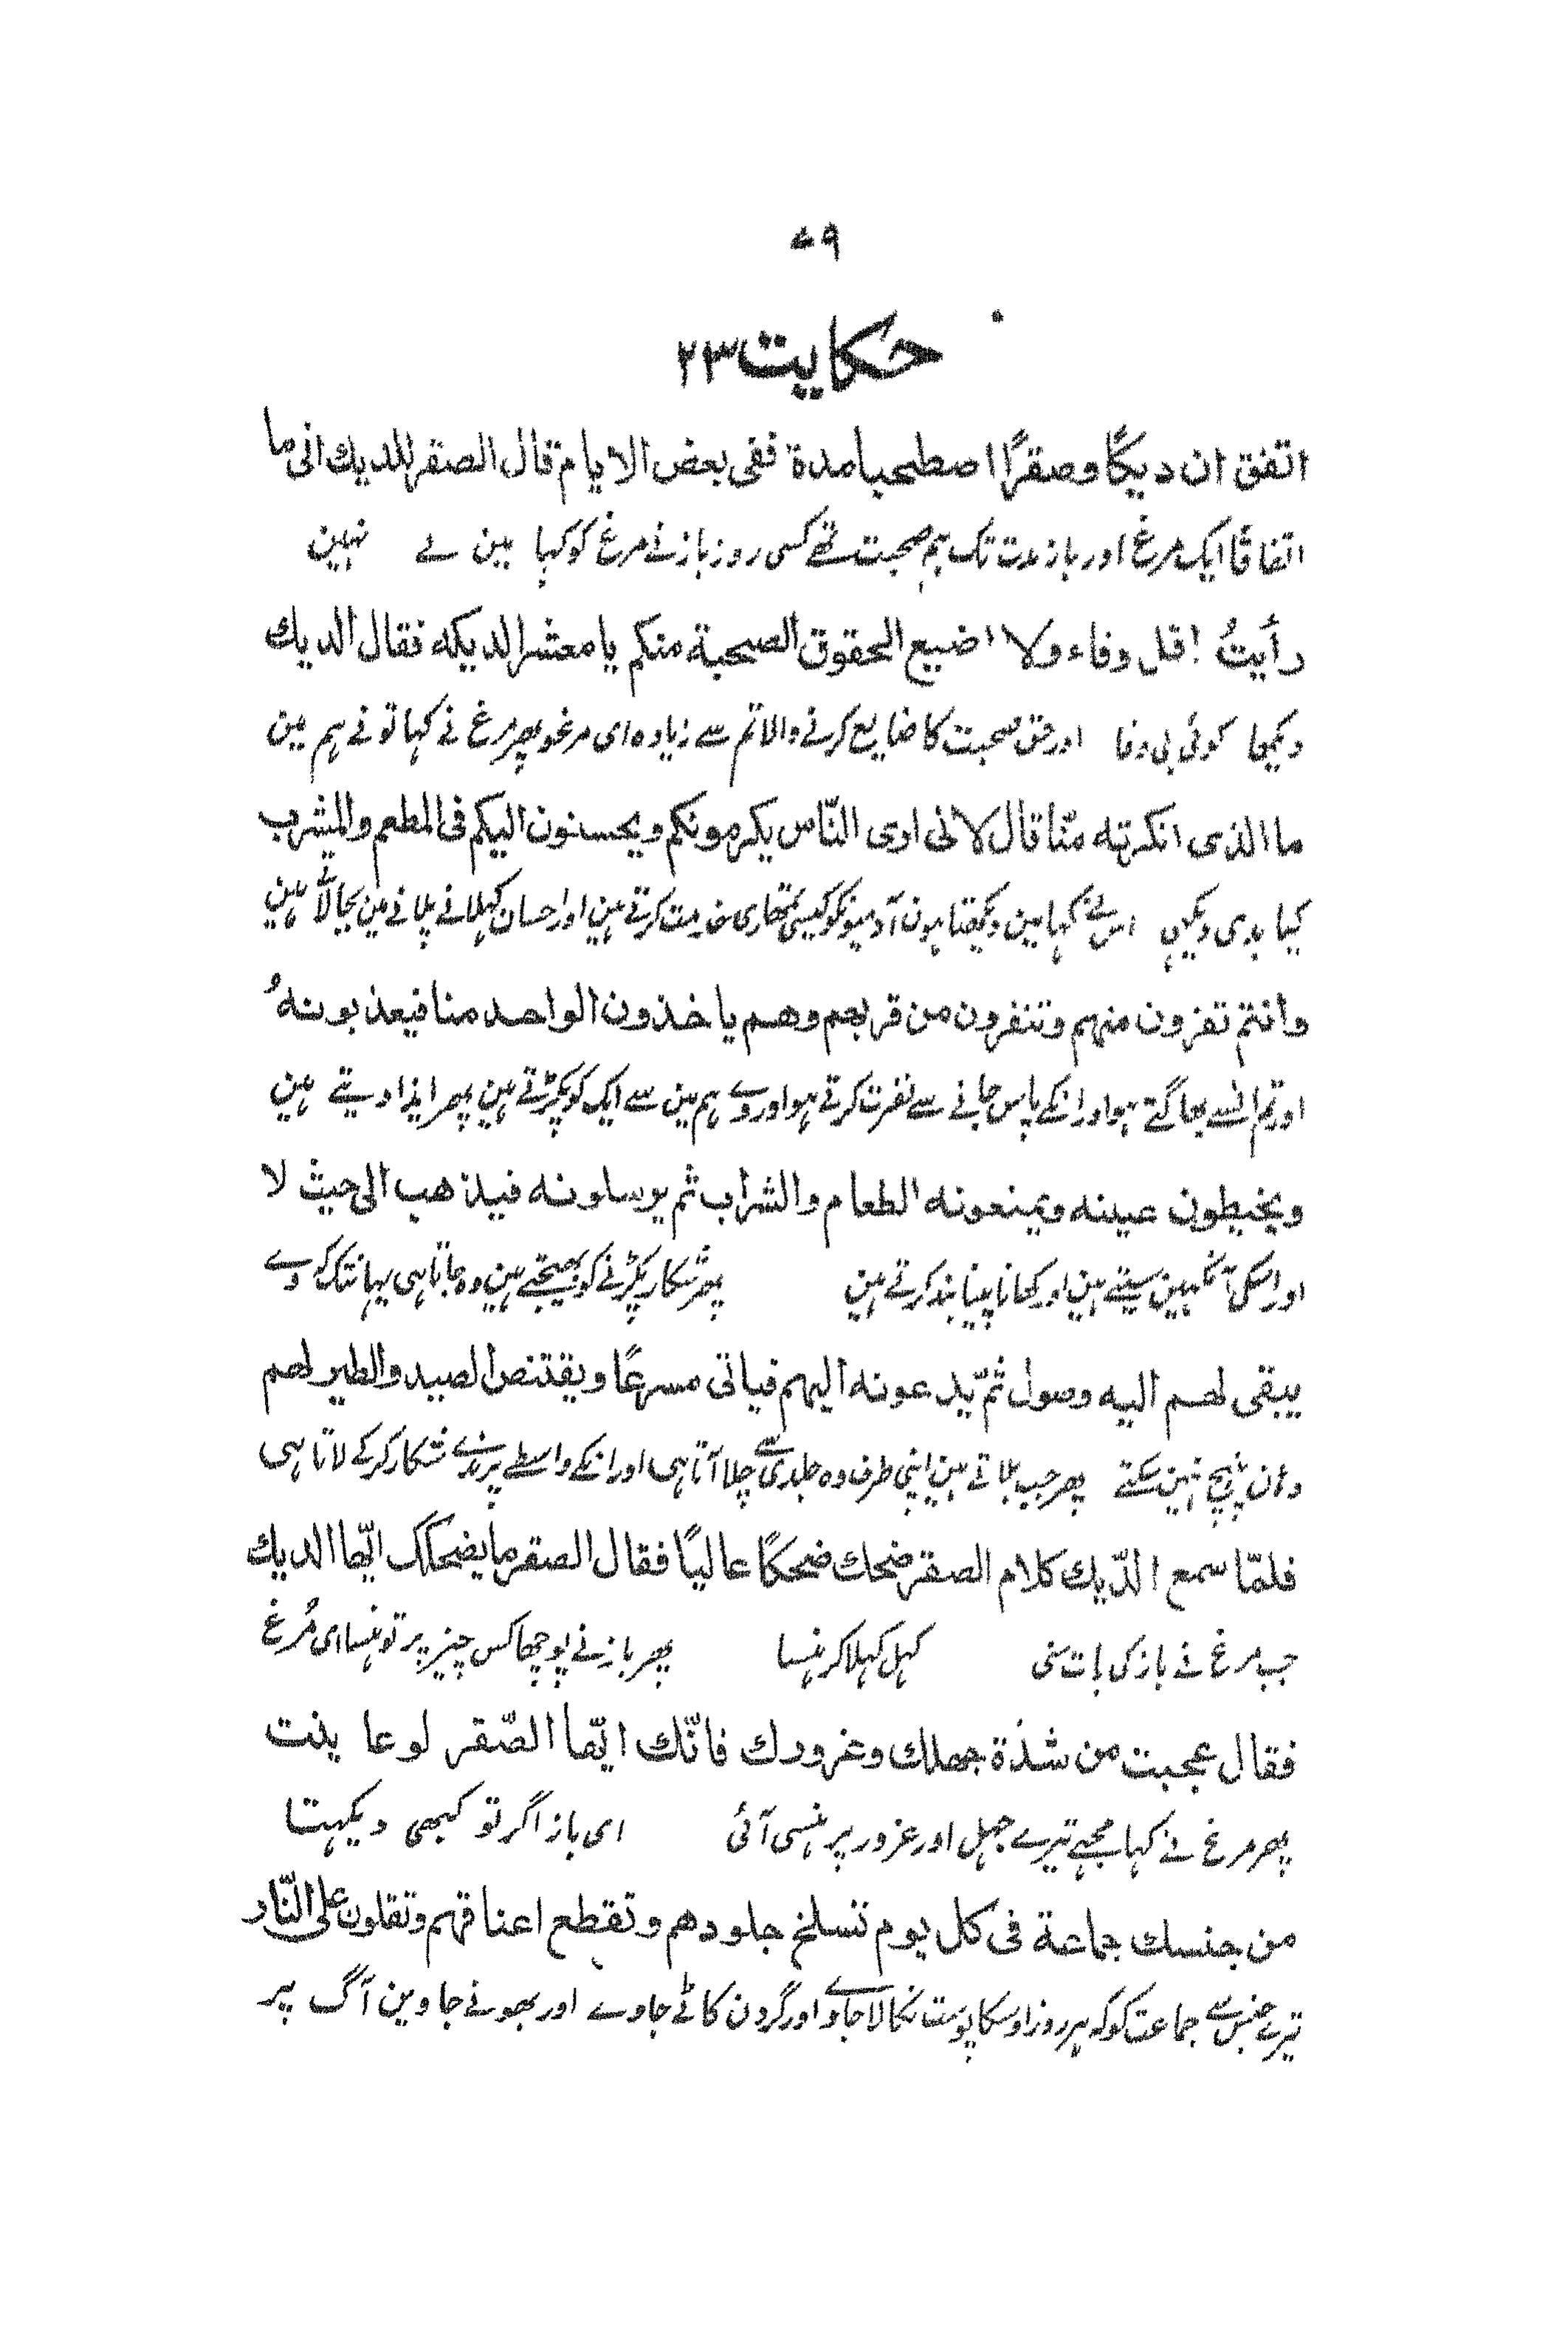 ۷۹
حکایت ۲۳
اتفق ان دیکًا وصقرًا اصطحبا مدة ففی بعض الایام قال الصقر للدیك انی ما
اتفاقًا ایک مرغ اور باز مدت تک ہم صحبت تھے کسی روز باز نے مرغ کو کہا مین نے نہین
رأیتُ اقل وفاء ولا اضیع الحقوق الصحبة منکم یا معشر الدیکه فقال الدیك
دیکھا کوئی بی وفا اور حق صحبت کا ضایع کرنے والا تم سے زیادہ ای مرغو پھر مرغ نے کہا تو نے ہم مین
ما الذی انکرته منّا قال لانی اری النّاس یکرمونکم ویحسنون الیکم فی المطعم والمشرب
کیا بدی دیکہی اس نے کہا مین دیکھتا ہون آدمیونکو کیسی تمھاری خدمت کرتے ہین اور احسان کہلانے پلانے مین بجا لاتے ہین
وانتم تفرون منهم وتنفرون من قربهم وهم یاخذون الواحد منا فیعذبونهُ
اور تم انسے بھاگتے ہو اور انکے پاس جانے سے نفرت کرتے ہو اور وے ہم مین سے ایک کو پکڑتے ہین پھر ایذا دیتے ہین
ویخیطون عینه ویمنعونه الطعام والشراب ثم یرسلونه فیذهب الی حیث لا
اور اسکی آنکہین سیتے ہین اور کھانا پینا بند کرتے ہین پھر شکار پکڑنے کو بھیجتے ہین وہ جاتا ہی یہانتک کہ وے
یبقی لهم الیه وصول ثمّ یدعونه الیهم فیاتی مسرعًا ویقتنص الصید والطیر لهم
وہان پہنچ نہین سکتے پھر جب بلاتے ہین اپنی طرف وہ جلدی سے چلا آتا ہی اور انکے واسطے پرندے شکار کرکے لاتا ہی
فلمّا سمع الدّیك کلام الصقر ضحك ضحکًا عالیًا فقال الصقر ما یضحکک ایّها الدیك
جب مرغ نے باز کی بات سنی کہل کہلا کر ہنسا پھر باز نے پوچھا کس چیز پر تو ہنسا ای مُرغ
فقال عجبت من شدّة جهلك وغرورك فانّك ایّها الصّقر لو عاینت
پھر مرغ نے کہا مجہے تیرے جہل اور غرور پر ہنسی آئی ای باز اگر تو کبھی دیکہتا
من جنسك جماعة فی کل یوم تنسلخ جلودهم وتقطع اعناقهم وتقلون علی النّار
تیرے جنس سے جماعت کو کہ ہر روز اوسکا پوست نکالا جاوے اور گردن کاٹے جاوے اور بھونے جاوین آگ پر